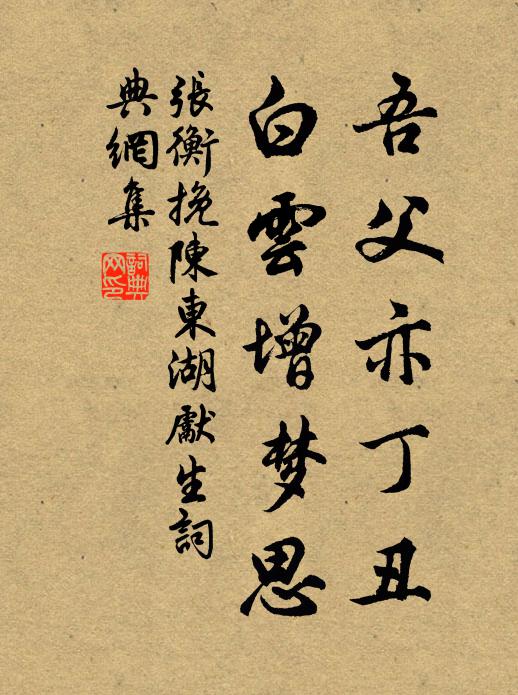 吾父亦丁丑
白雲增梦思
張衡挽陳東湖獻生詞
典網集
詞典
网印